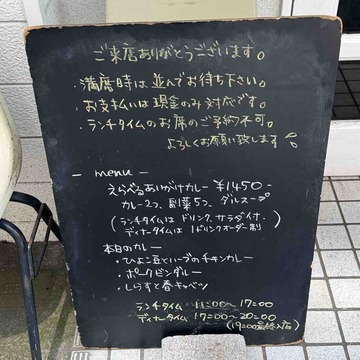 ご来店ありがとうございます。
・満席時は並んでお待ち下さい。
・お支払いは現金のみ対応です。
・ランチタイムのお席のご予約不可。
よろしくお願い致します
- menu -
えらべるあいがけカレー ¥1450-
カレー2つ、副菜5つ、ダルスープ
(ランチタイムは ドリンク、サラダ付、
ディナータイムは 1ドリンクオーダー制)
本日のカレー
・ひよこ豆とハーブのチキンカレー
・ポークビンダルー
・しらすと春キャベツ
ランチタイム 11:00〜17:00
ディナータイム 17:00〜20:00
(19:00最終入店)